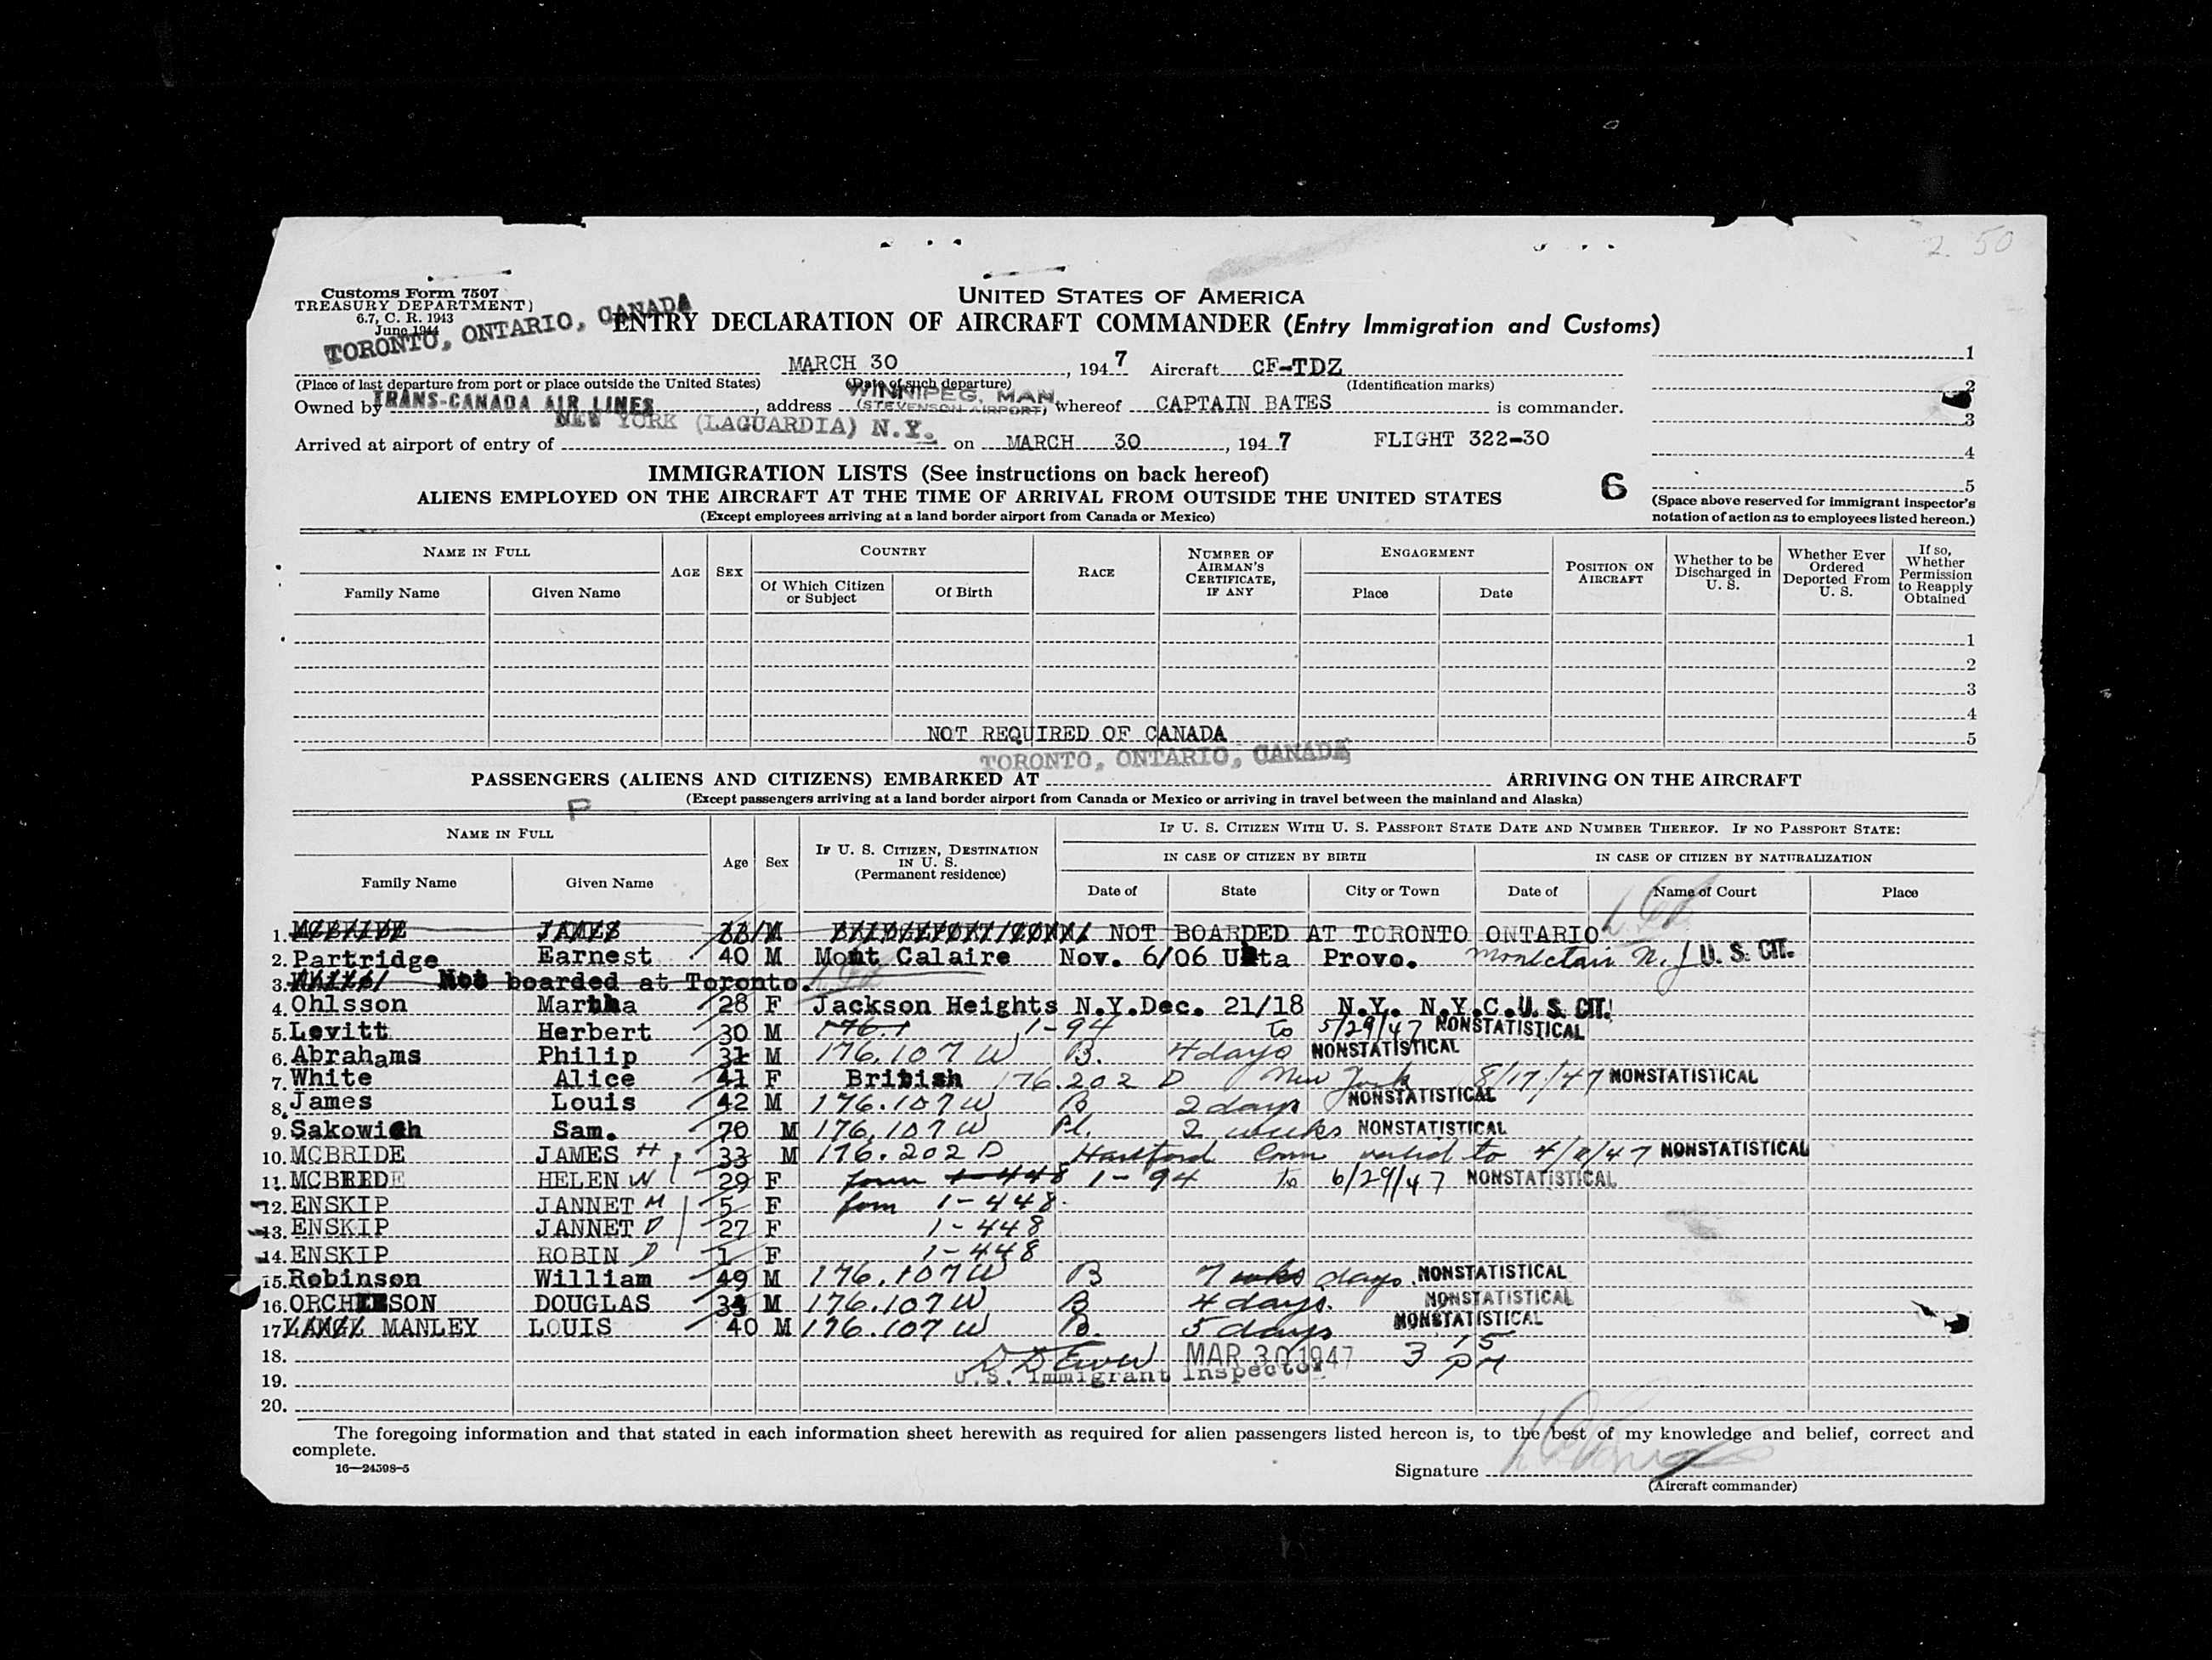 2.50
Customs Form 7507
TREASURY DEPARTMENT)
6.7, C. R. 1943
June 1944
TORONTO, ONTARIO, CANADA
UNITED STATES OF AMERICA
ENTRY DECLARATION OF AIRCRAFT COMMANDER (Entry Immigration and Customs)
MARCH 30, 1947 Aircraft CF-TDZ
(Place of last departure from port or place outside the United States) (Date of such departure) (Identification marks)
Owned by TRANS-CANADA AIR LINES, address WINNIPEG, MAN. (STEVENSON AIRPORT), whereof CAPTAIN BATES is commander.
Arrived at airport of entry of NEW YORK (LAGUARDIA) N.Y. on MARCH 30, 1947 FLIGHT 322-30
1
2
3
4
5
IMMIGRATION LISTS (See instructions on back hereof)
ALIENS EMPLOYED ON THE AIRCRAFT AT THE TIME OF ARRIVAL FROM OUTSIDE THE UNITED STATES
6
(Except employees arriving at a land border airport from Canada or Mexico)
(Space above reserved for immigrant inspector's
notation of action as to employees listed hereon.)
NAME IN FULL
Family Name Given Name
AGE SEX
COUNTRY
Of Which Citizen or Subject
Of Birth
RACE
NUMBER OF AIRMAN'S CERTIFICATE, IF ANY
ENGAGEMENT
Place Date
POSITION ON AIRCRAFT
Whether to be Discharged in U. S.
Whether Ever Ordered Deported From U. S.
If so, Whether Permission to Reapply Obtained
1
2
3
4
NOT REQUIRED OF CANADA 5
TORONTO, ONTARIO, CANADA
PASSENGERS (ALIENS AND CITIZENS) EMBARKED AT ARRIVING ON THE AIRCRAFT
(Except passengers arriving at a land border airport from Canada or Mexico or arriving in travel between the mainland and Alaska)
P
NAME IN FULL
Family Name Given Name
Age Sex
IF U. S. CITIZEN, DESTINATION IN U. S. (Permanent residence)
IF U. S. CITIZEN WITH U. S. PASSPORT STATE DATE AND NUMBER THEREOF. IF NO PASSPORT STATE:
IN CASE OF CITIZEN BY BIRTH IN CASE OF CITIZEN BY NATURALIZATION
Date of State City or Town Date of Name of Court Place
1. MCBRIDE JAMES 33 M NOT BOARDED AT TORONTO ONTARIO
2. Partridge Earnest 40 M Mont Calaire Nov. 6/06 Uta Provo. Montclair N.J U. S. CIT.
3. Not boarded at Toronto.
4. Ohlsson Martha 28 F Jackson Heights N.Y. Dec. 21/18 N.Y. N.Y.C. U. S. CIT.
5. Levitt Herbert 30 M 176.1 1-94 to 5/29/47 NONSTATISTICAL
6. Abrahams Philip 31 M 176.107 W B. 4 days NONSTATISTICAL
7. White Alice 41 F British 176.202 D New York 8/17/47 NONSTATISTICAL
8. James Louis 42 M 176.107 W B 2 days NONSTATISTICAL
9. Sakowich Sam. 70 M 176.107 W Pl. 2 weeks NONSTATISTICAL
10. MCBRIDE JAMES H 33 M 176.202 D Hartford Conn valid to NONSTATISTICAL
11. MCBRIDE HELEN W 29 F form 1-448 1-94 to 6/29/47 NONSTATISTICAL
12. ENSKIP JANNET M 5 F form 1-448
13. ENSKIP JANNET D 27 F 1-448
14. ENSKIP ROBIN D 1 F 1-448
15. Robinson William 49 M 176.107 W B 7 wks days NONSTATISTICAL
16. DOUGLAS M 176.107 W B 4 days. NONSTATISTICAL
17. MANLEY LOUIS 40 M 176.107 W B. 5 days NONSTATISTICAL
18. MAR 30 1947 3 15 PM
19. U.S. Immigrant Inspector
20.
The foregoing information and that stated in each information sheet herewith as required for alien passengers listed hereon is, to the best of my knowledge and belief, correct and
complete.
16—24598-5
Signature
(Aircraft commander)